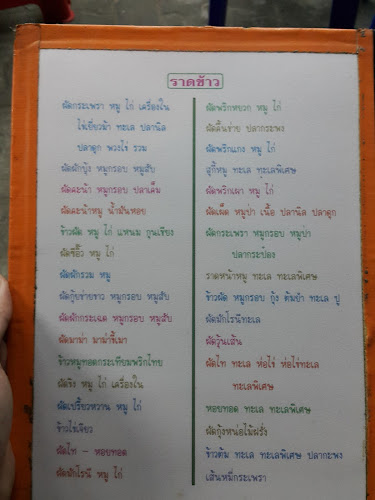 ราดข้าว
ผัดกระเพรา หมู ไก่ เครื่องใน
ไข่เยี่ยวม้า ทะเล ปลานิล
ปลาดุก พวงไข่ รวม
ผัดผักบุ้ง หมูกรอบ หมูสับ
ผัดคะน้า หมูกรอบ ปลาเค็ม
ผัดคะน้าหมู น้ำมันหอย
ข้าวผัด หมู ไก่ แหนม กุนเชียง
ผัดซีอิ้ว หมู ไก่
ผัดผักรวม หมู
ผัดกุ้ยช่ายขาว หมูกรอบ หมูสับ
ผัดผักกระเฉด หมูกรอบ หมูสับ
ผัดมาม่า มาม่าขี้เมา
ข้าวหมูทอดกระเทียมพริกไทย
ผัดขิง หมู ไก่ เครื่องใน
ผัดเปรี้ยวหวาน หมู ไก่
ข้าวไข่เจียว
ผัดไท - หอยทอด
ผัดมักโรนี หมู ไก่
ผัดพริกหยวก หมู ไก่
ผัดขึ้นฉ่าย ปลากะพง
ผัดพริกแกง หมู ไก่
สุกี้หมู ทะเล ทะเลพิเศษ
ผัดพริกเผา หมู ไก่
ผัดเผ็ด หมูป่า เนื้อ ปลานิล ปลาดุก
ผัดกระเพรา หมูกรอบ หมูป่า
ปลากระป๋อง
ราดหน้าหมู ทะเล ทะเลพิเศษ
ข้าวผัด หมูกรอบ กุ้ง ต้มยำ ทะเล ปู
ผัดมักโรนีทะเล
ผัดวุ้นเส้น
ผัดไท ทะเล ห่อไข่ ห่อไข่ทะเล
ทะเลพิเศษ
หอยทอด ทะเล ทะเลพิเศษ
ผัดกุ้งหน่อไม้ฝรั่ง
ข้าวต้ม ทะเล ทะเลพิเศษ ปลากะพง
เส้นหมี่กระเพรา